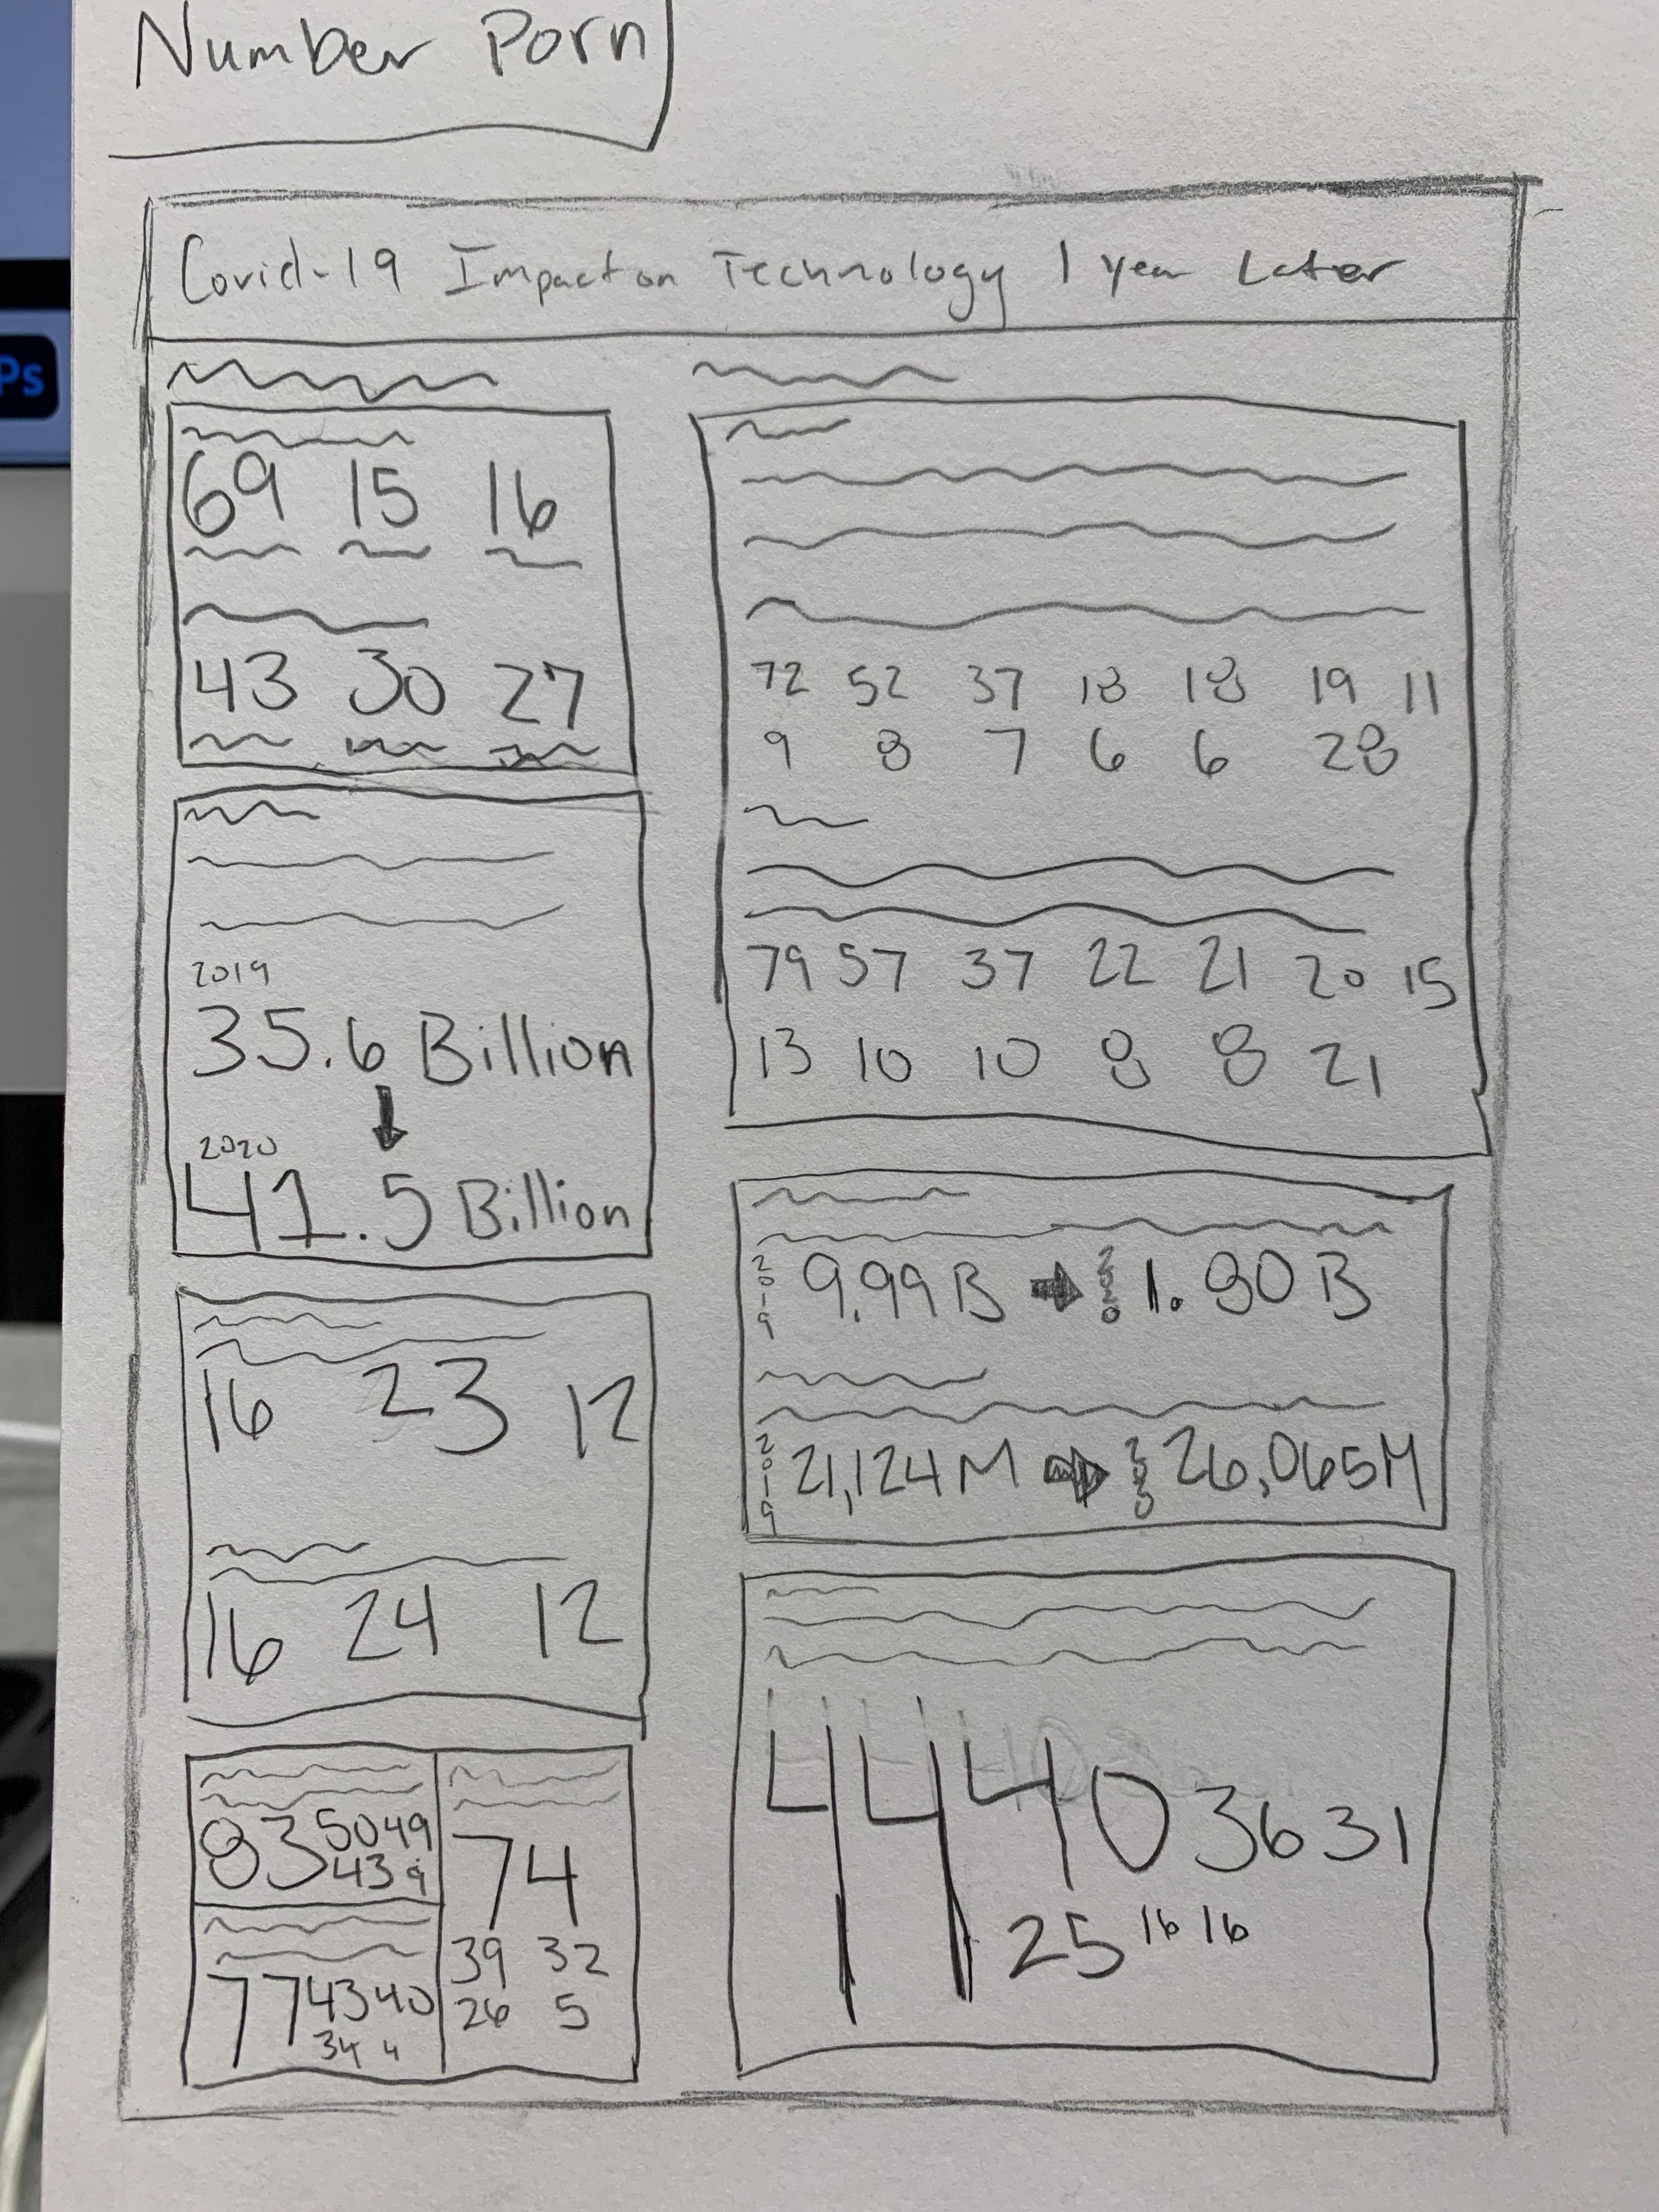 Number Porn
Covid-19 Impact on Technology 1 Year Later
69 15 16
43 30 27
2019
35.6 Billion
2020
41.5 Billion
16 23 12
16 24 12
83 50 49
43 9
77 43 40
34 4
74
39 32
26 5
72 52 37 18 18 19 11
9 8 7 6 6 28
79 57 37 22 21 20 15
13 10 10 8 8 21
2019 9.99B 2020 1.80B
2019 21,124M 2020 26,065M
44 40 36 31
25 16 16
Ps